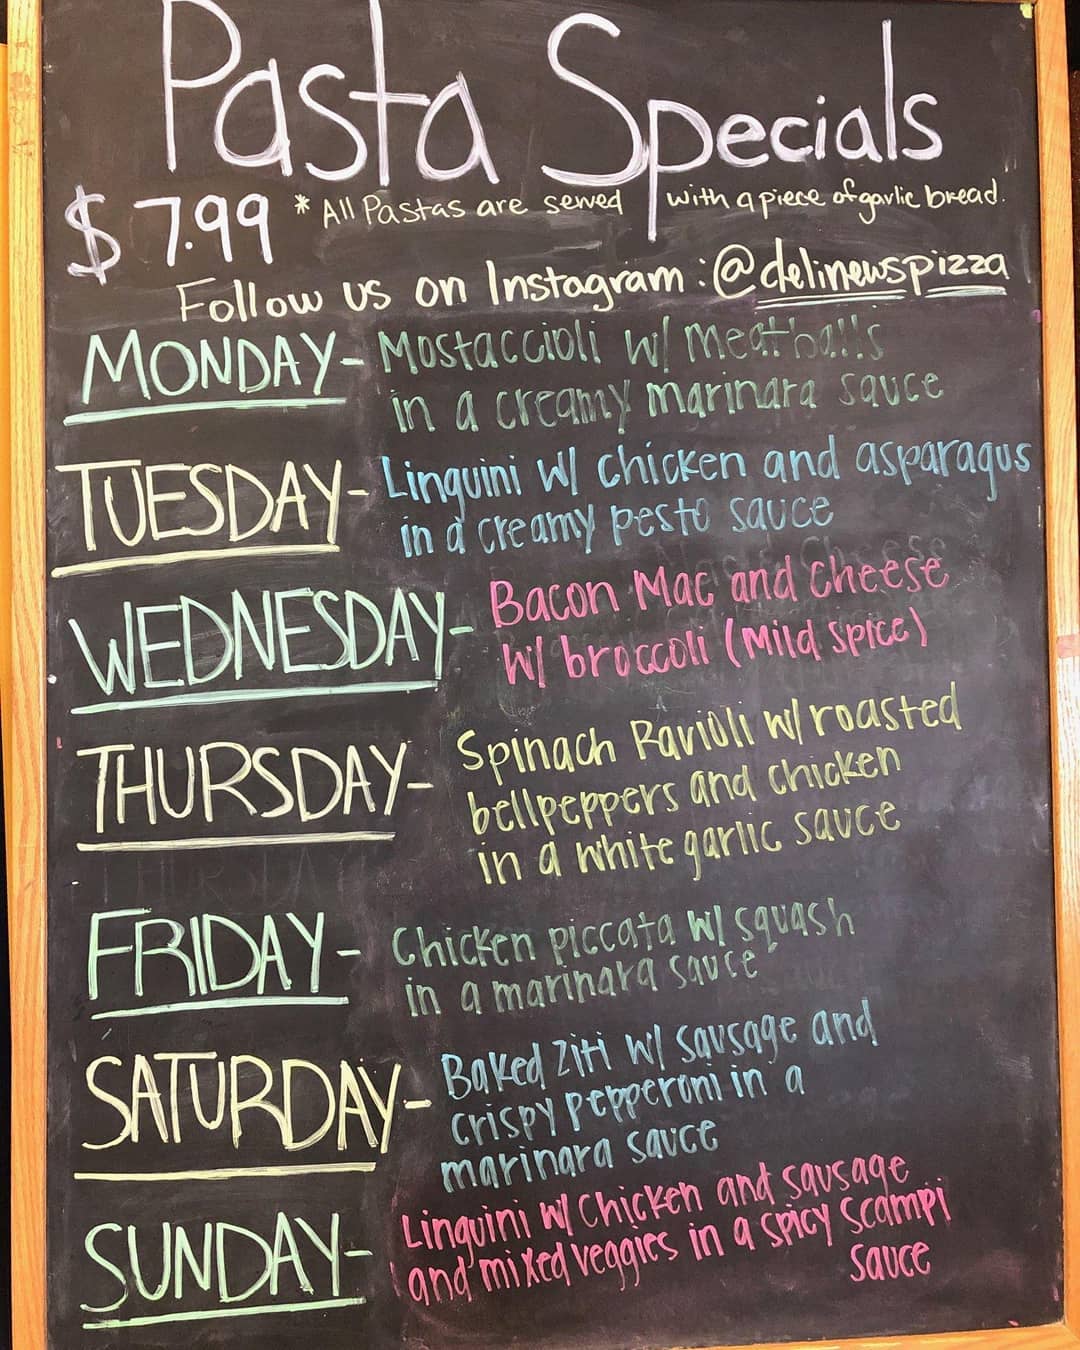 Pasta Specials
$7.99 *All Pastas are served with a piece of garlic bread.
Follow us on Instagram: @delinewspizza
MONDAY- Mostaccioli w/ meatballs
in a creamy marinara sauce
TUESDAY- Linguini w/ chicken and asparagus
in a creamy pesto sauce
WEDNESDAY- Bacon Mac and cheese
w/ broccoli (Mild spice)
THURSDAY- Spinach Ravioli w/ roasted
bellpeppers and chicken
in a white garlic sauce
FRIDAY- Chicken piccata w/ squash
in a marinara sauce
SATURDAY- Baked Ziti w/ sausage and
crispy pepperoni in a
marinara sauce
SUNDAY- Linguini w/ chicken and sausage
and mixed veggies in a spicy scampi
sauce